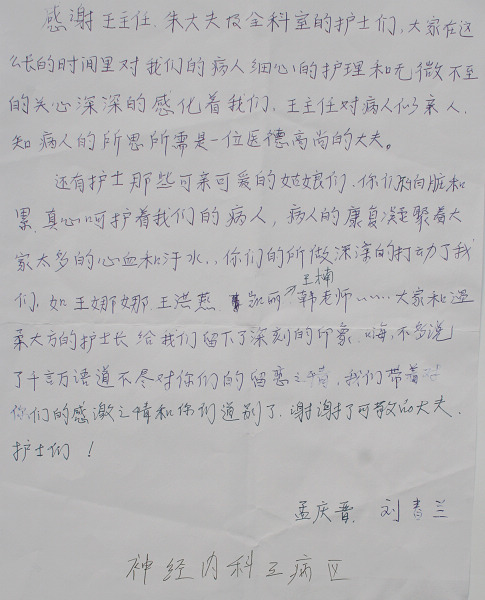 感谢王主任.朱大夫及全科室的护士们,大家在这
么长的时间里对我们的病人细心的护理和无微不至
的关心深深的感化着我们.王主任对病人似亲人.
知病人的所思所需是一位医德高尚的大夫。
还有护士那些可亲可爱的姑娘们.你们不怕脏和
累.真心呵护着我们的病人,病人的康复凝聚着大
家太多的心血和汗水..你们的所做深深的打动了我
王楠
们.如王娜娜.王洪燕.凯丽 韩老师……大家和温
柔大方的护士长给我们留下了深刻的印象.嗨,不多说
了千言万语道不尽对你们的留恋之情,我们带着对
你们的感激之情和你们道别了.谢谢了可敬的大夫.
护士们!
孟庆晋.刘青兰
神经内科五病区